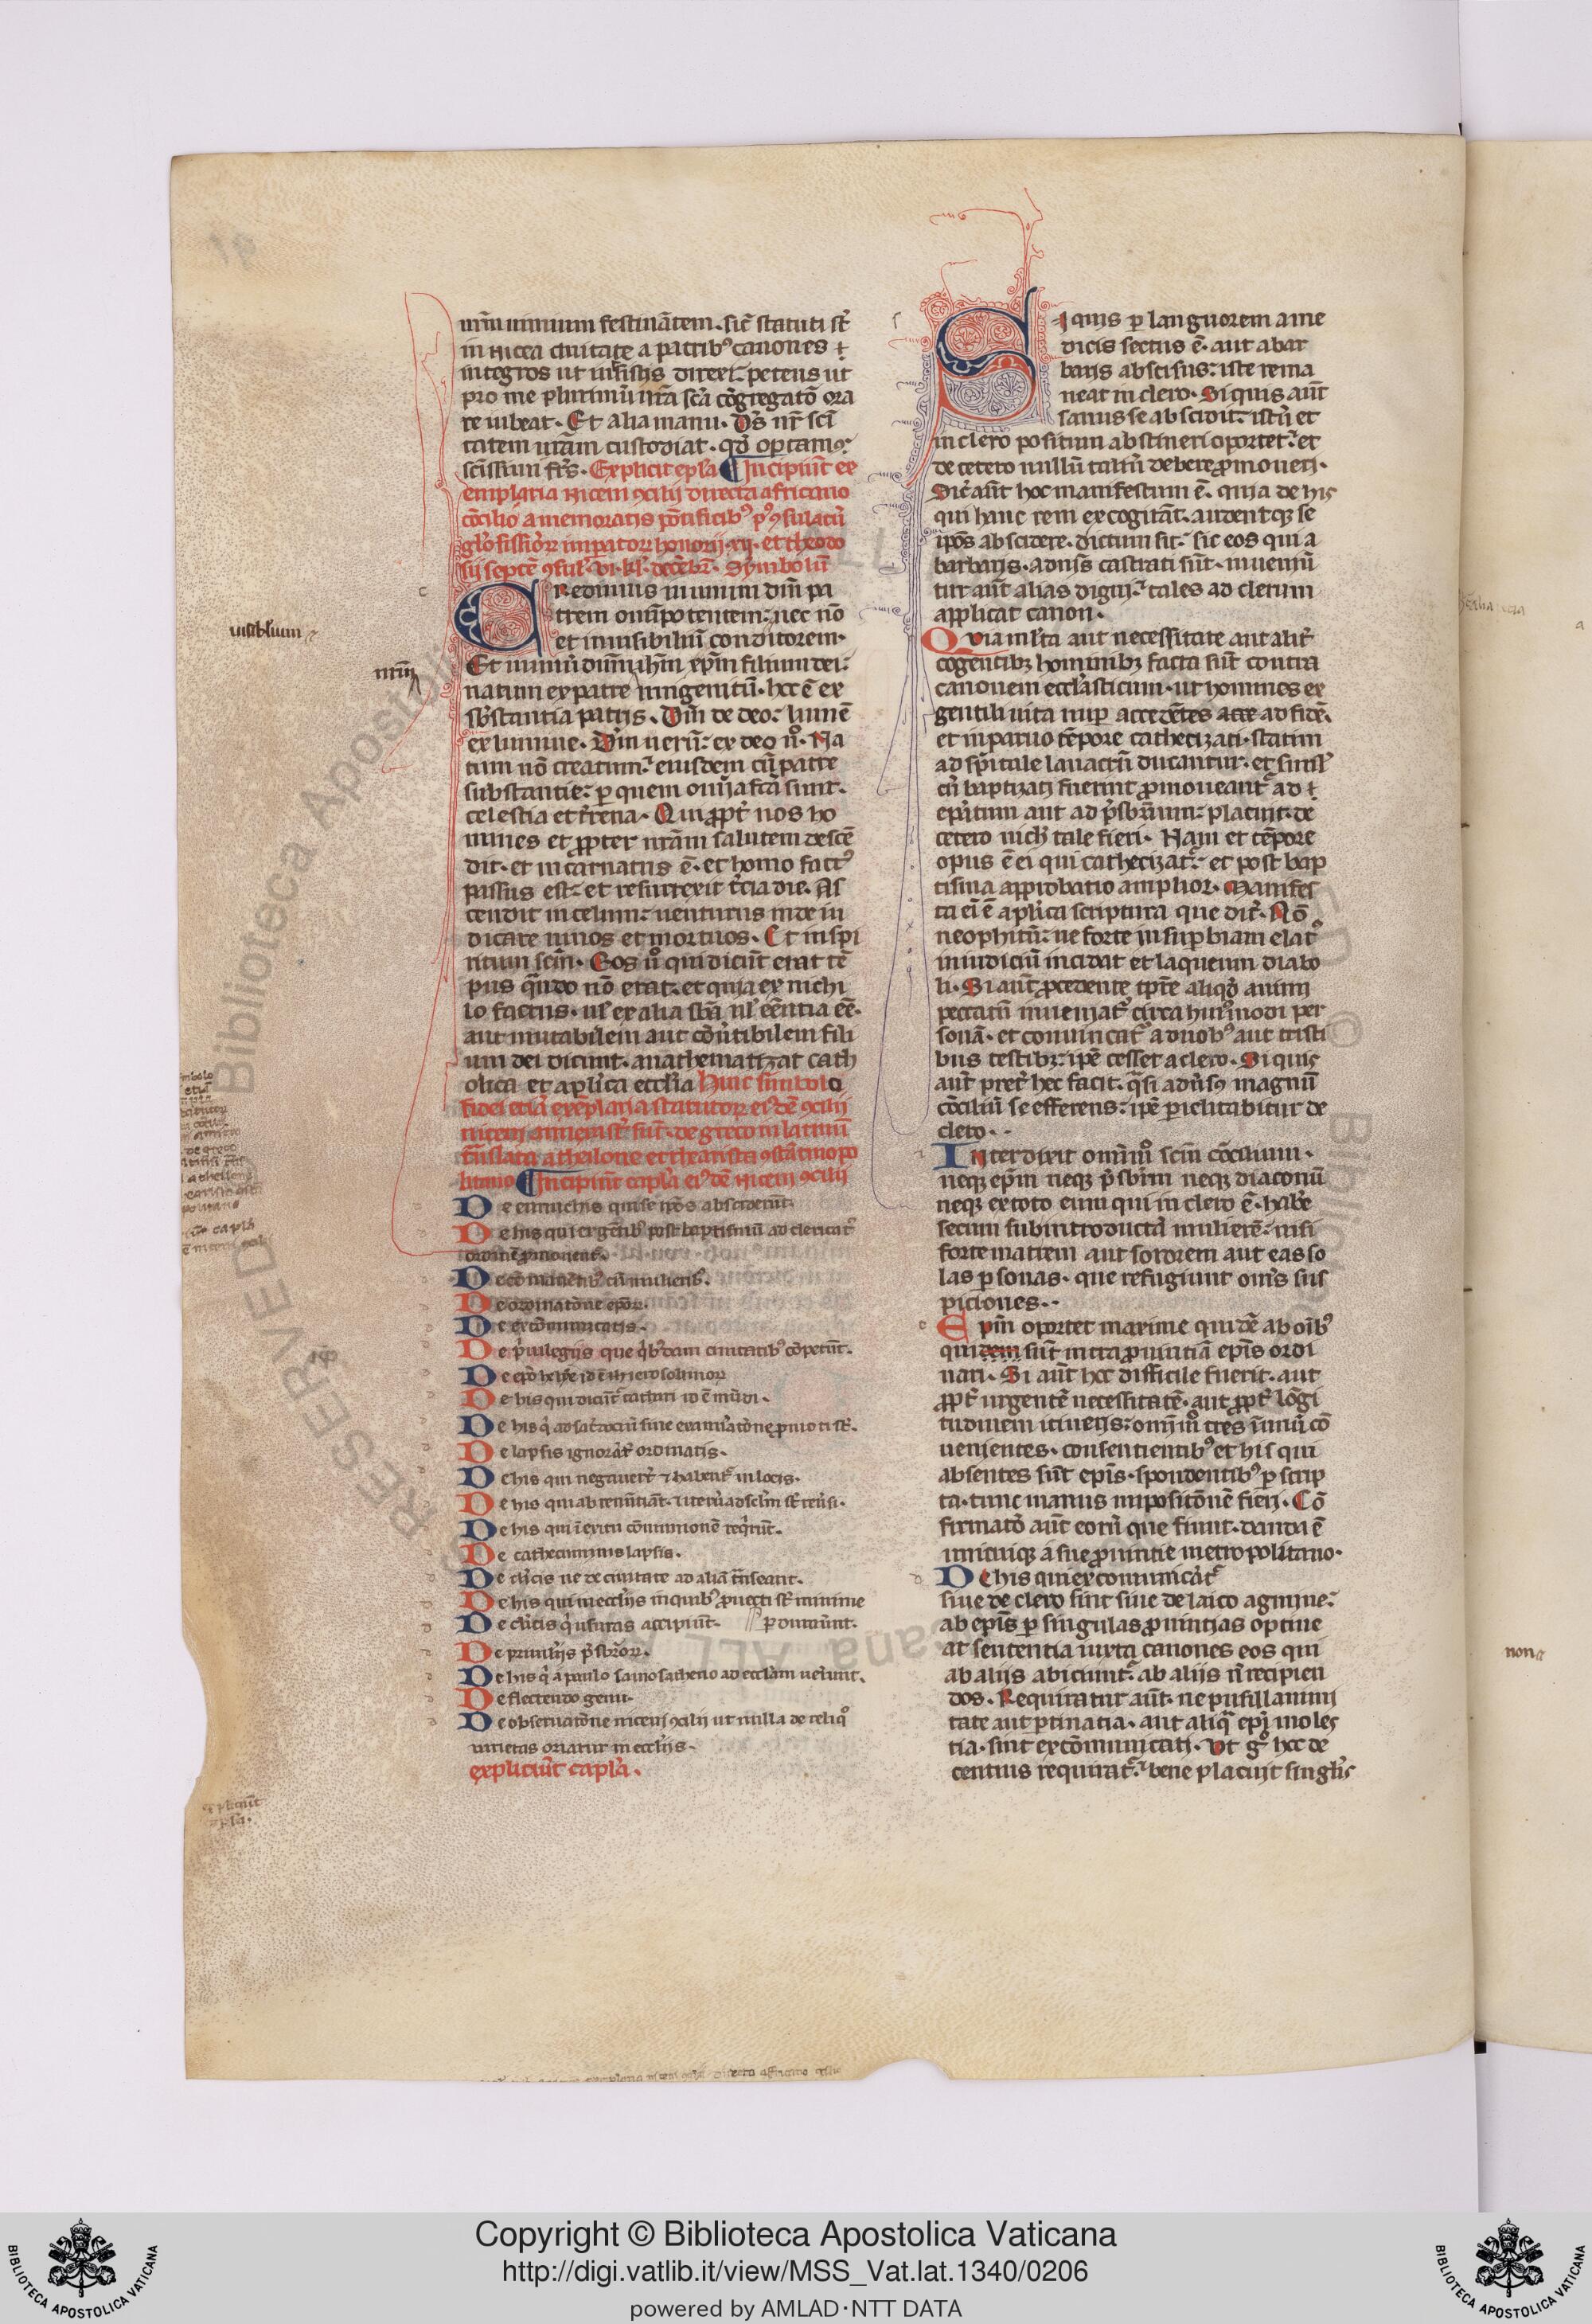 in nicea ciuitate a patribꝰ canones ⁊
integros ut uisistis direxi: petens ut
pro me plurimū ur̄am sc̄a cōgregatō ora
re iubeat. Et alia manu. Ds̄ nr̄ sci
tatem ur̄am custodiat. qd̄ optamꝰ
sc̄issimi fr̄s. Explicit epl̄a Incipiūt ex
emplaria niceni ꝯcilij directa africano
cōcilio a memoratis pōtificibꝰ pꝰ ꝯsulatū
glo'sissiōꝝ imꝑatoꝝ honorij .xij. et theodo
sij septē ꝯsul' .vi. kl' decēbr̄. Symbolū
Credimus in unum dm̄ pa
trem omīpotentem: nec nō
et inuisibiliū conditorem.
uisibilium
Et unum dn̄m ihm̄ xpm̄ filium dei:
nr̄m
natum ex patre unigenitū. hoc ē ex
sb'stantia patris. Dm̄ de deo: lumē
ex lumine. Dm̄ uerū: ex deo uͦ. Na
tum nō creatum: eiusdem cū patre
substantie: ꝑ quem omīa fc̄a sunt.
celestia et tr̄rena. Qui ꝓpt' nos ho
mines et ꝓpter nr̄am salutem descē
dit. et incarnatus ē. et homo factꝰ
passus est: et resurrexit t'cia die. As
cendit in celum: uenturus inde iu
dicare uiuos et mortuos. Et in spi
ritum scm̄. Eos uͦ qui dicūt erat tē
pus quādo nō erat: et quia ex nichi
lo factus. ul' ex alia sb̄a ul' eēntia eē.
aut mutabilem aut cōu'tibilem fili
um dei dicunt. anathematizat cath
olica et apl'ica eccl'ia Huic simbolo
fidei etiā exēplaria statutoꝝ eiꝰdē ꝯcilij
niceni annexa st' de greco in latinū
trāslata a theilone et thearisto ꝯstātinopo
litano Incipiūt capl'a eiꝰdē niceni ꝯcilij
De eunuchis qui se ip̄os absciderūt.
De his qui ex gētibꝰ post baptismū ad clericat'
ordinē ꝓmouent'.
De cōmanētibꝰ cū mulieribꝰ.
De ordinatōne epōꝝ.
De excōmunicatis.
De p'uilegiis que qͥbꝰdam ciuitatibꝰ cōpetūt.
De epō helye id ē iherosolimoꝝ
De his qui dicūt' cathari id ē mūdi.
De his qͥ ad sac'docíū sine examīatōne ꝓmoti st'.
De lapsis ignorāt' ordinatis.
De his qui negauer̄t ⁊ habent' in locis.
De his qui abrenūtiāt. ⁊ iterū ad scl'm st' reu'si.
De his qui ī exitu cōmunionē reqͥrūt.
De cathecuminis lapsis.
De cl'icis ne de ciuitate ad aliā trāseant.
De his qui in eccl'ijs in quibꝰ ꝓuecti st' minime
De cl'icis qͥ usuras accipiūt. // ꝑdurāunt.
De priuil'ijs p'sbr̄oꝝ.
De his qͥ a paulo samosatheno ad eccl'am uen̄unt.
De flectendo genu.
De obseruatōne niceni ꝯcilij ut nulla de reliqͦ
uarietas oriatur in eccl'ijs.
expliciūt capl'a.
Si quis ꝑ languorem a me
dicis sectus ē. aut a bar
baris abscisus: iste rema
neat in clero. Si quis aūt
sanus se abscidit: istū et
in clero positum abstineri oportet: et
de cetero nullū taliū debere ꝓmoueri.
Sic' aūt hoc manifestum ē. quia de his
qui hanc rem excogitāt. audentqꝫ se
ip̄os abscidere. dictum sit: sic eos qui a
barbaris. a dn̄is castrati sūt. inueniū
tur aūt alias digni: tales ad clerum
applicat canon.
Quia m'ta aut necessitate aut alit'
cogentibꝫ hominibꝫ facta sūt contra
canonem eccl'asticum. ut homines ex
gentili uita nuꝑ accedētes ad fidē.
et in paruo tēpore cathecizati. statim
ad sp̄itale lauacrū ducantur. et simul'
cū baptizati fuerint ꝓmoueant' ad ⁊
ep̄atum aut ad p'sbr̄ium: placuit. de
cetero nich' tale fieri. Nam et tēpore
opus ē ei qui cathecizat': et post bap
tisma approbatio amplior. Manifes
ta ei ē apl'ica scriptura que dic̄. Nō
neophitū: ne forte in suꝑbiam elatꝰ
in iudiciū incidat et laqueum diabo
li. Si aūt ꝓcedente tp̄re aliqd' animi
peccatū inueniat' circa huiꝰmodi per
sonā. et conuincat' a duobꝰ aut tristi
bus testibꝫ: ip̄e cesset a clero. Si quis
aut' pret' hec facit. qͣsi adu'sꝰ magnū
cōciliū se efferens: ip̄e ꝑiclitabitur de
clero.
Interdixit omīmͦ scm̄ cōcilium.
neqꝫ ep̄m neqꝫ p'sbr̄m neqꝫ diaconū
neqꝫ ex toto eum qui in clero ē. hab'e
secum subintroductā mulierē: nisi
forte matrem aut sororem aut eas so
las ꝑsonas. que refugiunt om̄s sus
piciones.
Ep̄m oportet maxime quidē ab oībꝰ
qui sūt in ꝓuintiā ep̄is ordi
nari. Si aūt hoc difficile fuerit. aut
ꝓpt' urgentē necessitatē. aut ꝓpt' lōgi
tudinem itineris: omīmͦ tres ī unū cō
uenientes. consentientibꝰ et his qui
absentes sūt ep̄is. spondentibꝰ ꝑ scrip
ta. tunc manus impositōnē fieri. Cō
firmatō aūt eorū que fiunt. danda ē
unicuiqꝫ a sue ꝓuintie metropolitano.
De his qui excomunicāt'
siue de clero sint siue de laico agmine:
ab ep̄is ꝑ singulas ꝓuintias optine
at sententia iuxta canones eos qui
ab alijs abiciunt': ab alijs n̄ recipien
dos. Requiratur aūt. ne pusillanimi
tate aut ꝑtinatia. aut aliqͣ ep̄i moles
tia. sint excōmunicati. Vt gͦ hoc de
centius requirat': bene placuit singl'is
non
Copyright © Biblioteca Apostolica Vaticana
http://digi.vatlib.it/view/MSS_Vat.lat.1340/0206
powered by AMLAD·NTT DATA
BIBLIOTECA APOSTOLICA VATICANA
BIBLIOTECA APOSTOLICA VATICANA